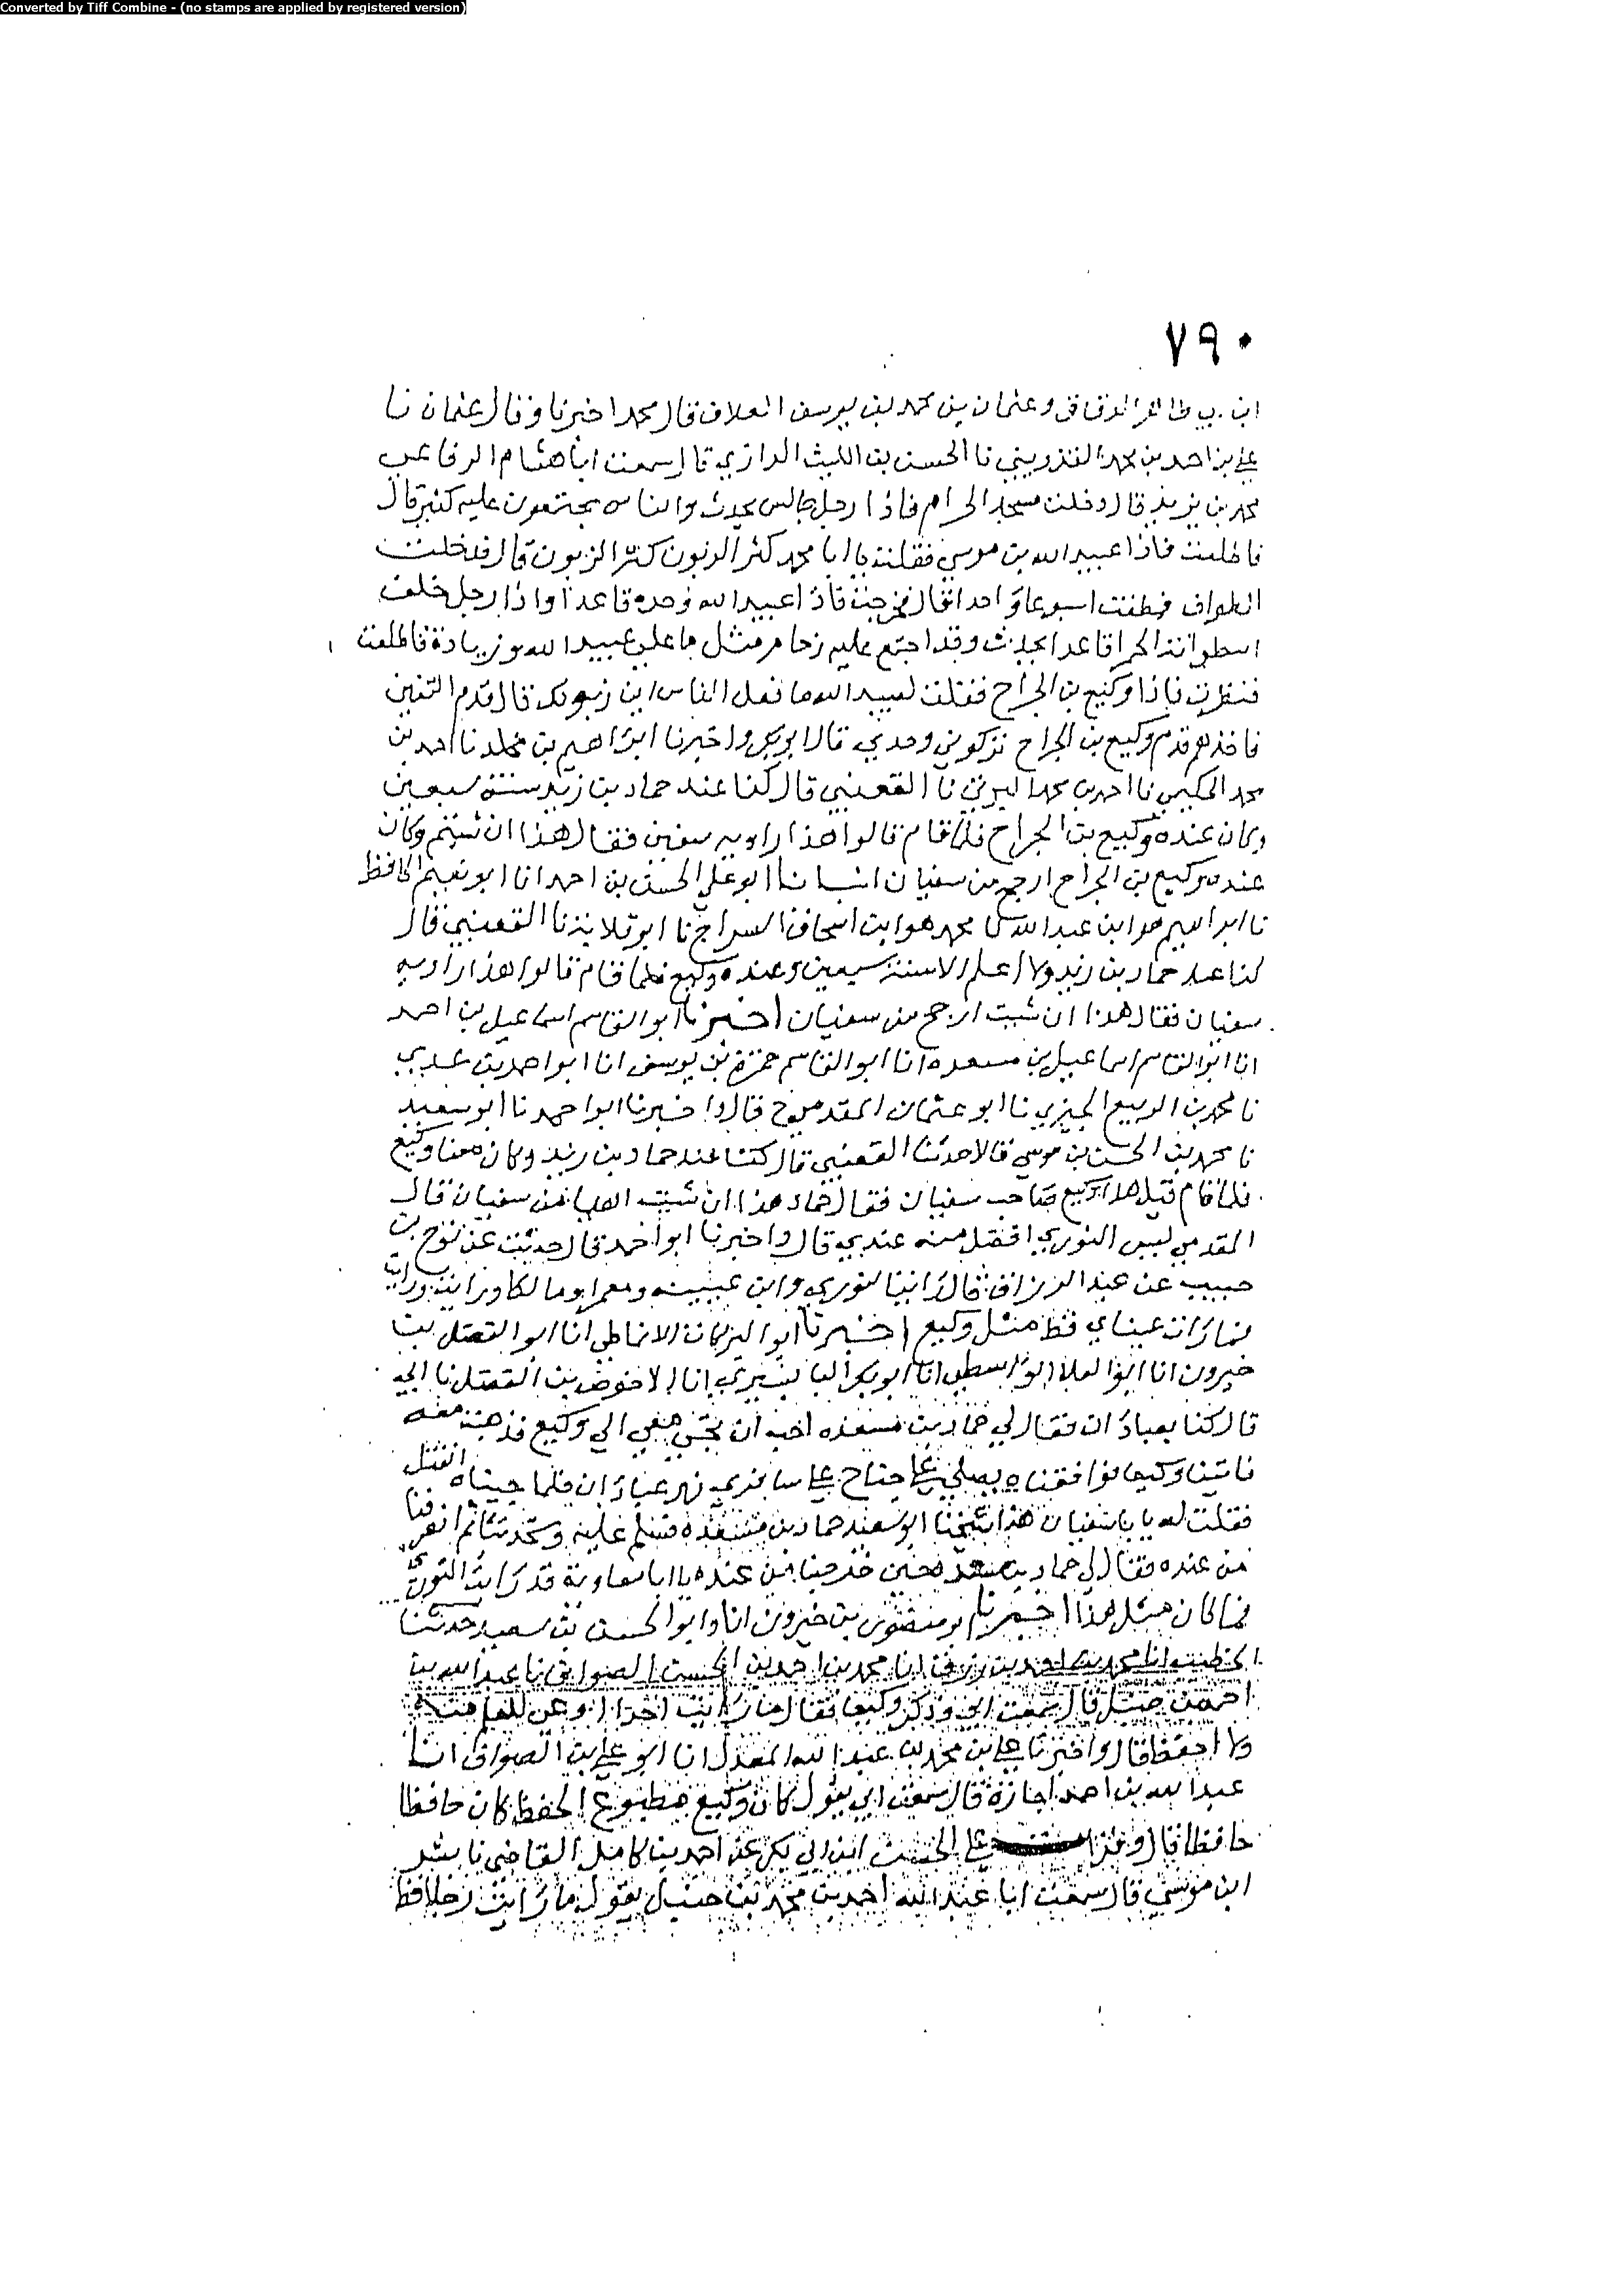 Converted by Tiff Combine - (no stamps are applied by registered version)
٧٩٠
ابن ابي طاهر الدقاق وعثمان بن محمد بن يوسف العلاف قال محمد اخبرنا وقال عثمان نا
علي بن احمد بن محمد القزويني نا الحسن بن الليث الرازي قال سمعت ابا هشام الرفاعي
محمد بن يزيد قال دخلت مسجد الحرام فاذا رجل جالس يحدث والناس مجتمعون عليه كثير قال
فاطلعت فاذا عبيد الله بن موسى فقلت يا ابا محمد كثر الزبون كثر الزبون قال فدخلت
الطواف فطفت اسبوعا واحدا قال فخرجت فاذا عبيد الله وحده قاعدا واذا رجل خلف
اسطوانة الحمرا قاعد يحدث وقد اجتمع عليه زحام مثل ما على عبيد الله وزيادة فاطلعت
فنظرت فاذا وكيع بن الجراح فقلت لعبيد الله ما فعل الناس اين زبونك قال قدم التنين
فاخذهم قدم وكيع بن الجراح تركوني وحدي قال ابو بكر واخبرنا ابراهيم بن مخلد نا احمد بن
محمد الحكيمي نا احمد بن محمد البرتي نا القعنبي قال كنا عند حماد بن زيد سنة سبعين
وكان عنده وكيع بن الجراح فلما قام قالوا هذا راوية سفين فقال هذا ان شئتم وكان
عنده وكيع بن الجراح ارجح من سفيان انبانا ابو علي الحسن بن احمد انا ابو نعيم الحافظ
نا ابراهيم هو ابن عبد الله نا محمد هو ابن اسحاق السراج نا ابو قلابة نا القعنبي قال
كنا عند حماد بن زيد ولا اعلم الا سنة سبعين وعنده وكيع فلما قام قالوا هذا راوية
سفيان فقال هذا ان شيت ارجح من سفيان اخبرنا ابو القاسم اسماعيل بن احمد
انا ابو القاسم اسماعيل بن مسعدة انا ابو القاسم حمزة بن يوسف انا ابو احمد بن عدي
نا محمد بن الربيع الجيزي نا ابو عثمان المقدمي ح قال واخبرنا ابو احمد نا ابو سعيد
نا محمد بن الحسن بن موسى قالا حدثنا القعنبي قال كنا عند حماد بن زيد وكان معنا وكيع
فلما قام قيل هذا وكيع صاحب سفيان فقال حماد هذا ان شيت من سفيان قال
المقدمي ليس الثوري افضل منه عندي قال واخبرنا ابو احمد قال حدثت عن نوح بن
حبيب عن عبد الرزاق قال رايت الثوري وابن عيينه ومعمرا ومالكا ورايت ورايت
فما رات عيناي قط مثل وكيع اخبرنا ابو البركات الانماطي انا ابو الفضل بن
خيرون انا ابو العلا الواسطي انا ابو بكر البابسيري انا الاحوص بن الفضل نا ابي
قال كنا بعبادان فقال لي حماد بن مسعده احب ان تجي معي الي وكيع فذهبت معه
فاتينا وكيعا فوافقناه يصلي على جناح علي نهر عبادان فلما جيناه انفتل
فقلت له يا با سفيان هذا شيخنا ابو سعيد حماد بن مسعدة فسلم عليه وتحدثنا ثم انصرفنا
من عنده فقال لي حماد بن مسعدة حين خرجنا من عنده يا ابا معاوية قد رايت الثوري
فما كان مثل هذا اخبرنا ابو منصور بن خيرون انا وابو الحسن بن سعيد حدثنا
الخطيب انا محمد بن احمد بن رزق انا محمد بن احمد بن الحسن الصواف نا عبد الله بن
احمد بن حنبل قال سمعت ابي وذكر وكيعا فقال ما رايت احدا اوعى للعلم منه
ولا احفظ قال واخبرنا علي بن محمد بن عبد الله المعدل انا ابو علي بن الصواف انا
عبد الله بن احمد اجازة قال سمعت ابي يقول كان وكيع مطبوع الحفظ كان حافظا
حافظا قال علي الحسن ابن ابي بكر عن احمد بن كامل القاضي نا بشر
ابن موسى قال سمعت ابا عبد الله احمد بن محمد بن حنبل يقول ما رايت رجلا قط